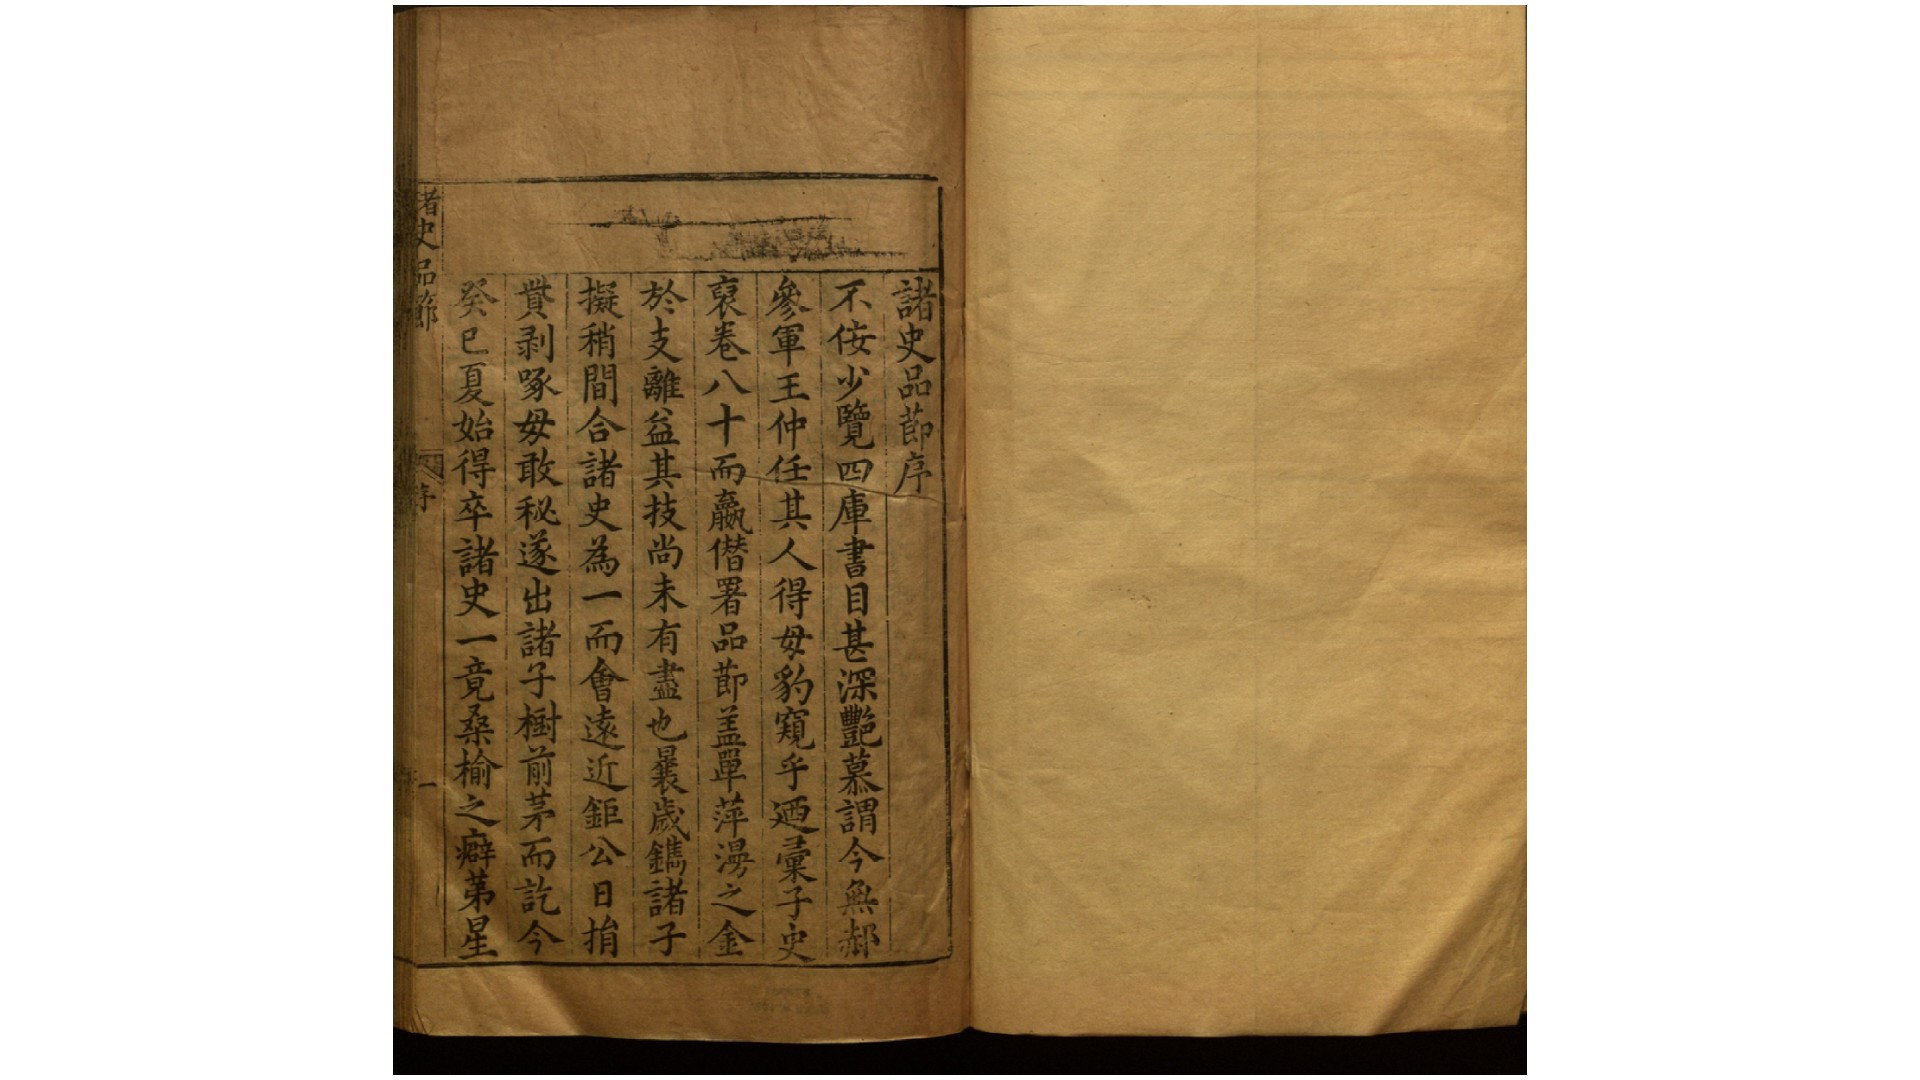 諸史品節序
不侫少覽四庫書目甚深艷慕謂今無郝
參軍王仲任其人得毋豹窺乎迺彚子史
裒卷八十而贏僭署品節盖單萍漫之金
於支離益其技尚未有盡也曩歲鐫諸子
擬稍間合諸史為一而會遠近鉅公日捐
貲剥啄毋敢秘遂出諸子樹前茅而訖今
癸巳夏始得卒諸史一竟桑榆之癖苐星
諸史品節
序
一